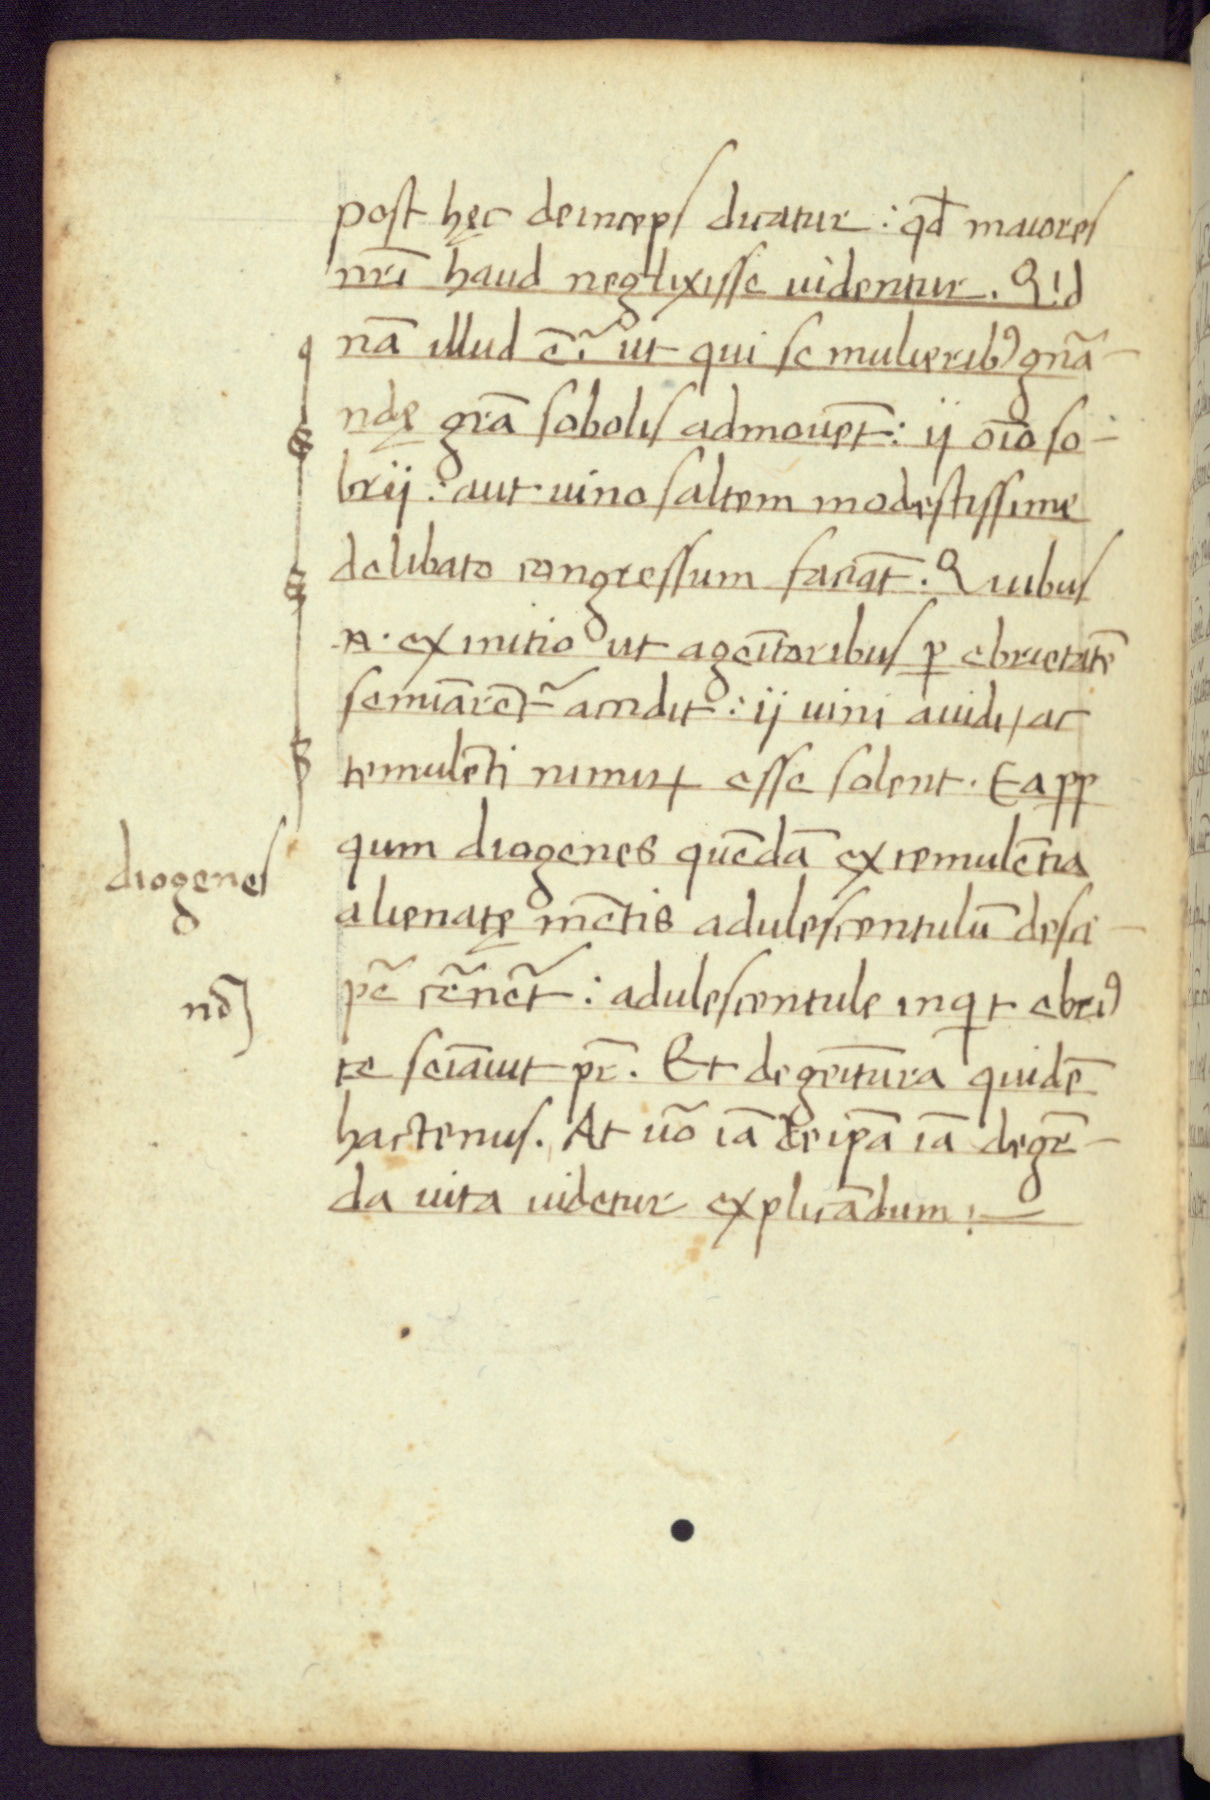 post hęc deinceps dicatur : qđ maiores
nr̄i haud neglixisse uidentur. Qid
nā illud ē : ut qui se mulieribꝰ gnā-
ndę gr̄a sobolis admouēt : ij oīo so-
brij : aut uino saltem modestissime
delibato congressum faciāt. Quibus
.n. ex initio ut a geīt̄oribus ꝑ ebrietatē
semīarēt̃ accidit : ij uini auidi, ac
temulēti nimiū esse solent. Ea ꝓp̄
qum diogenes quēdā ex temulētia
diogenes
alienatę mētis adulescentulū desci-
pē cērnēt : adulescentule inqt ebriꝰ
nō
te seīauit pr̄. Et de geīt̄ura quidē
hactenus. At ūo iā de ip̄a iā degē-
da uita uidetur explicādum :—